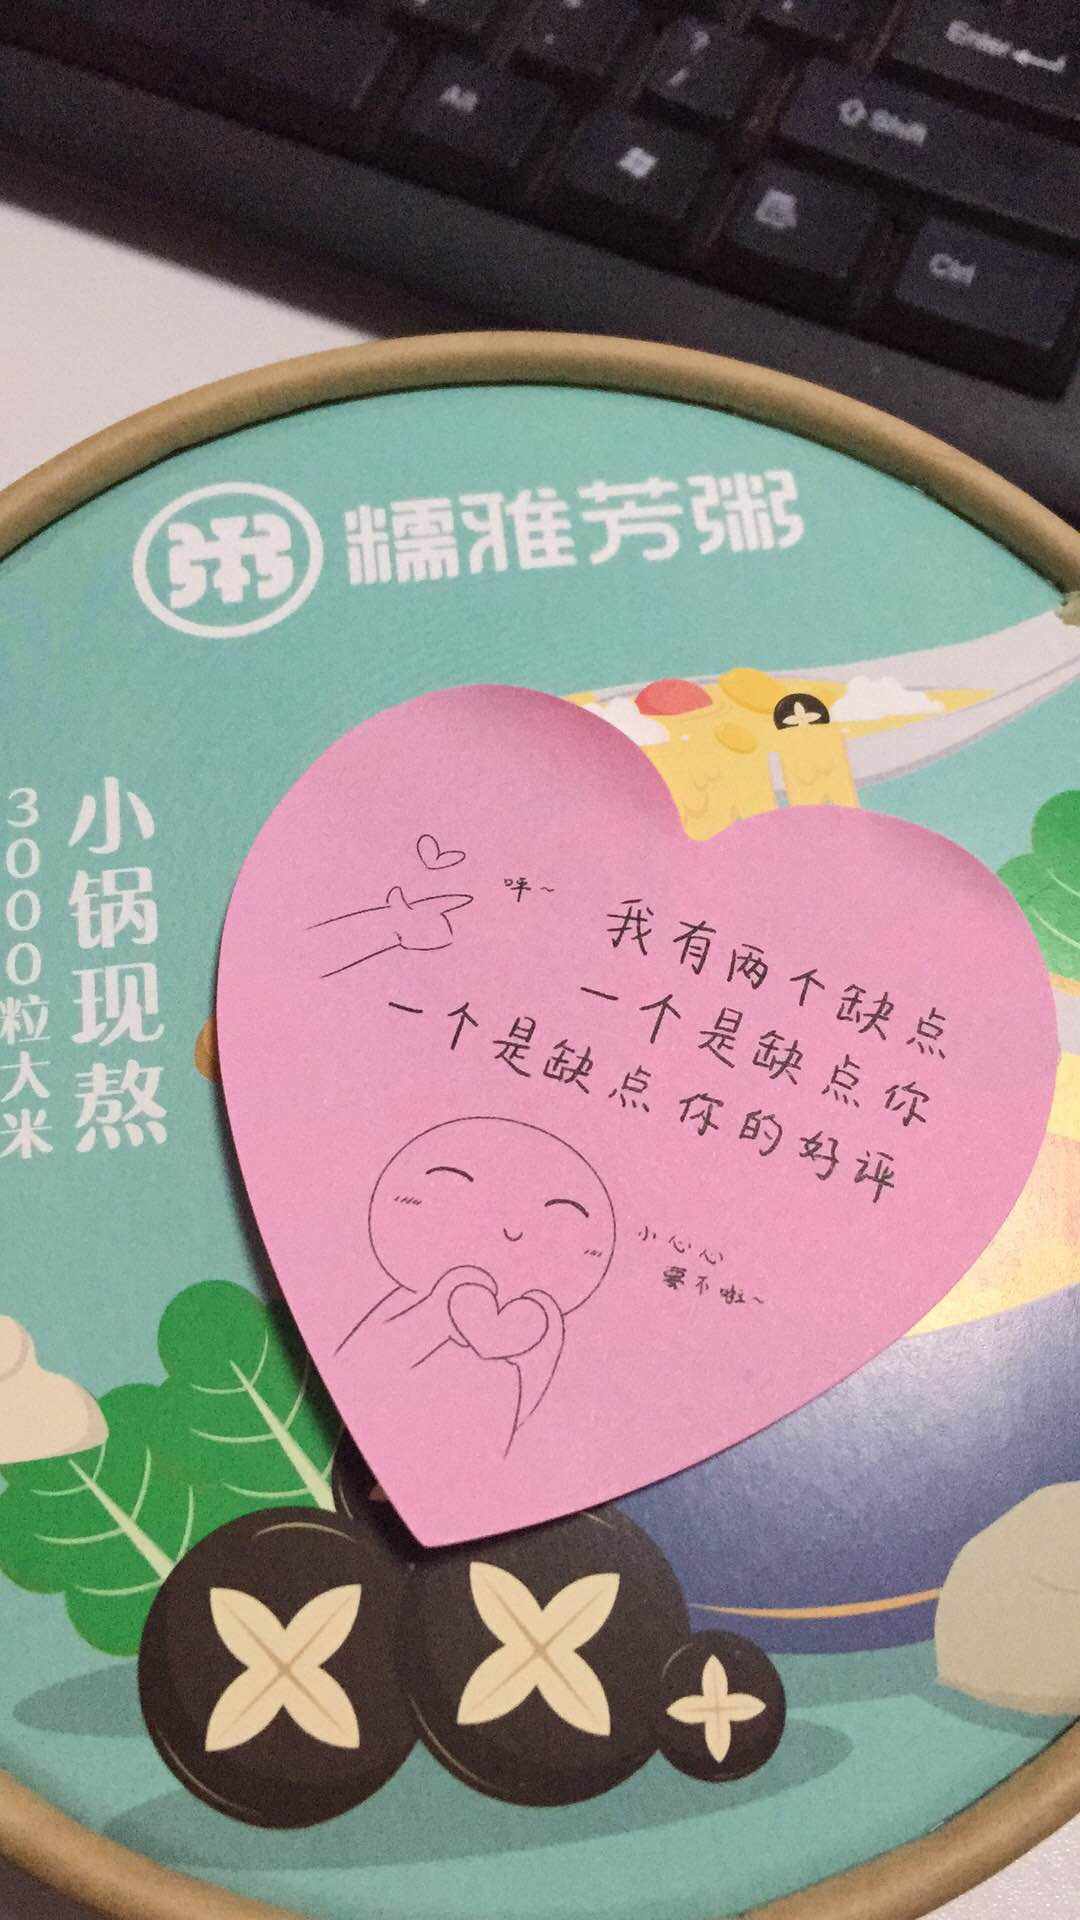 Enter
?
/
Alt
Shift
Ctrl
粥 糯雅芳粥
小锅现熬
3000粒大米
呯~
我有两个缺点
一个是缺点你
一个是缺点你的好评
小心心
要不啦~